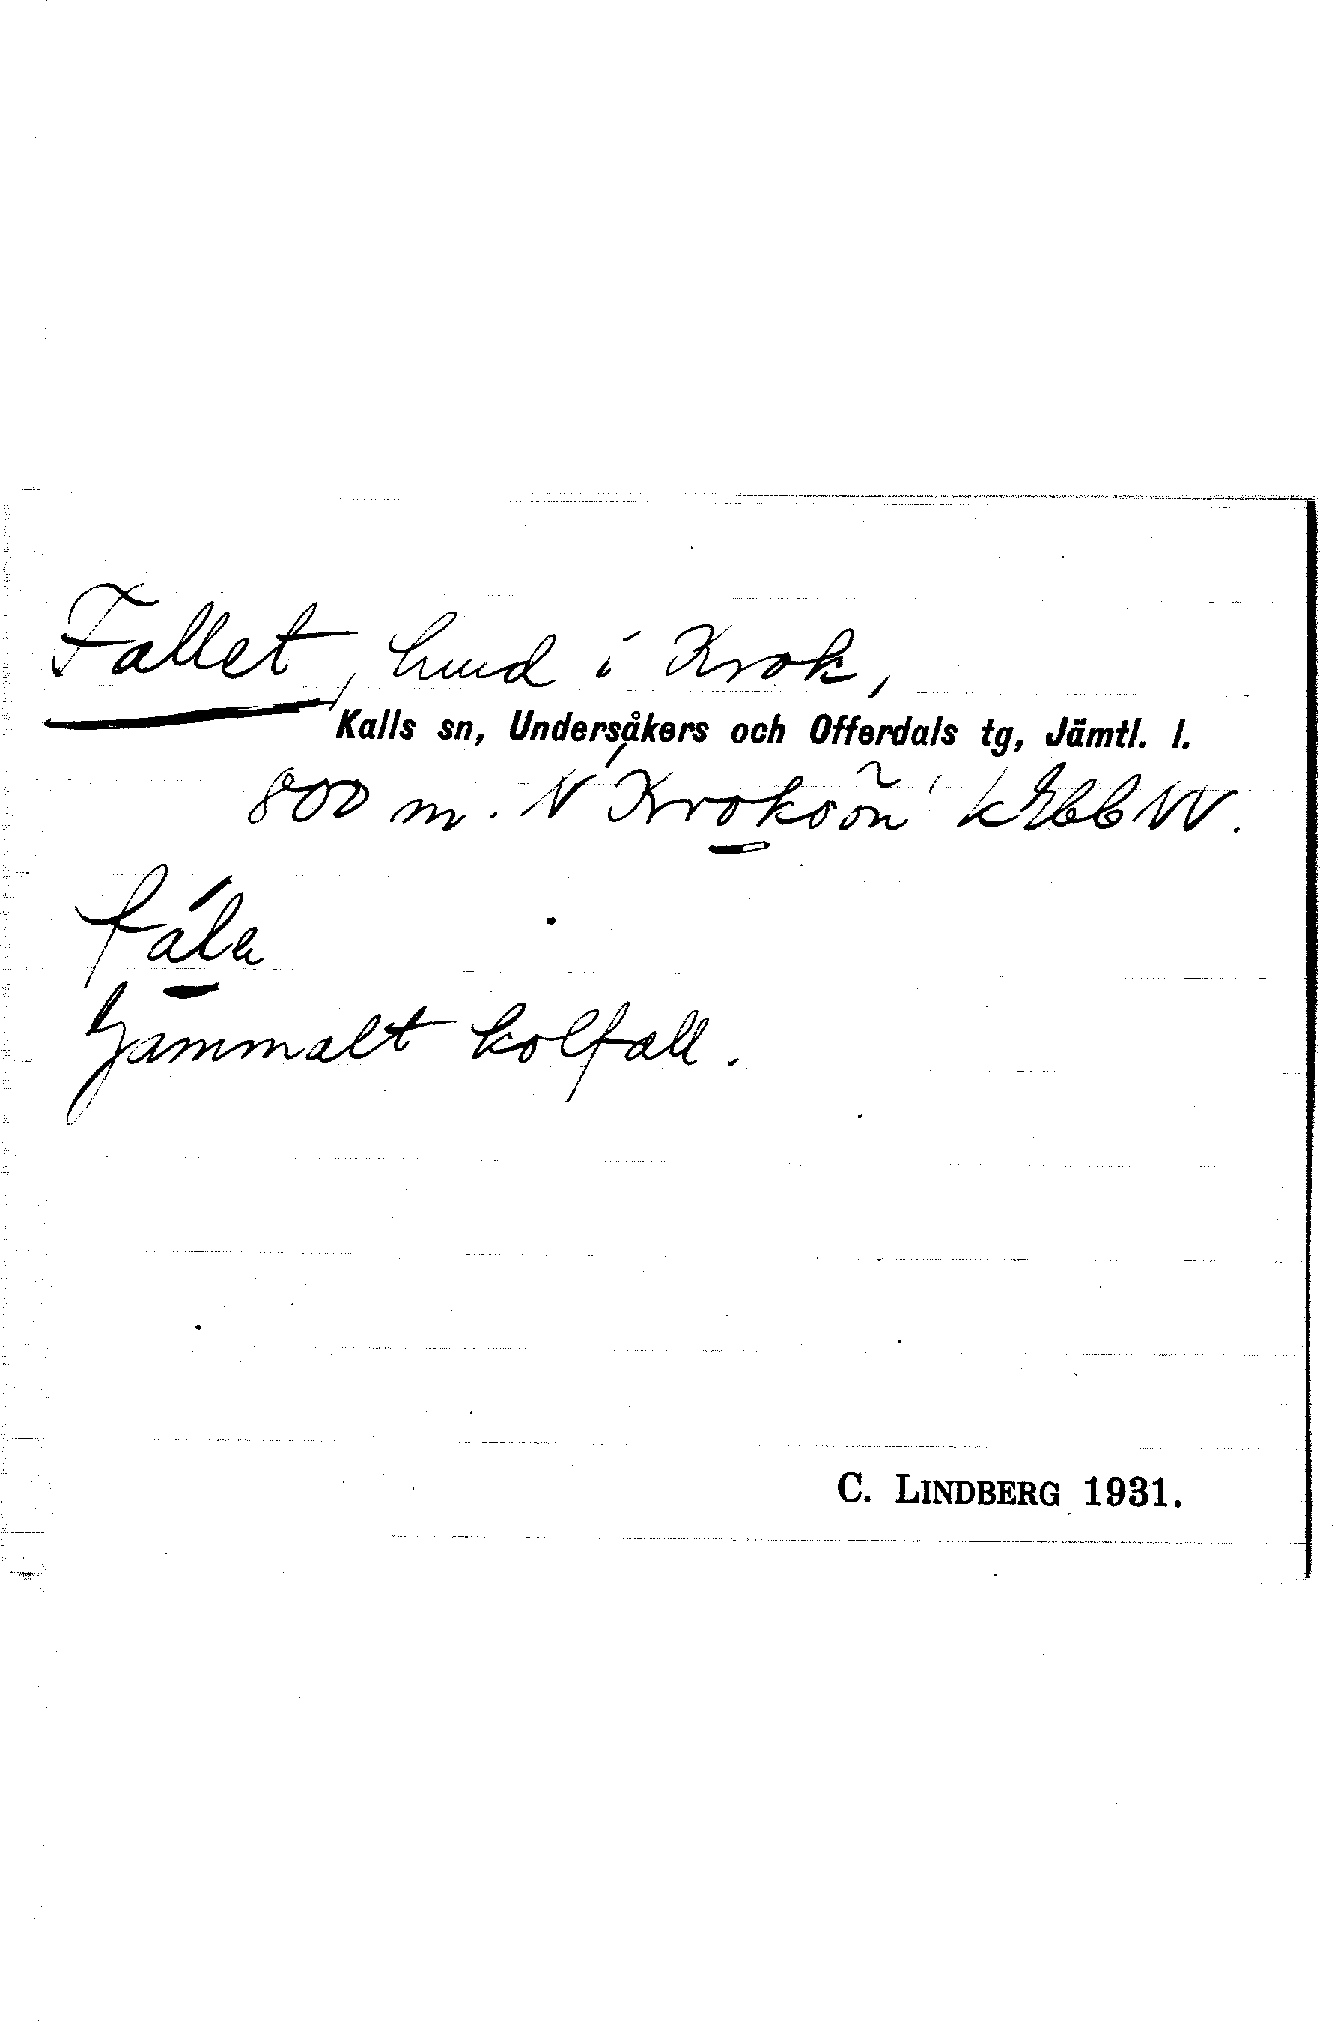 Fallet, lund i Krok,
Kalls sn, Undersåkers och Offerdals tg, Jämtl. l.
800 m. N Kroksön
fála
Gammalt kolfall.
C. LINDBERG 1931.